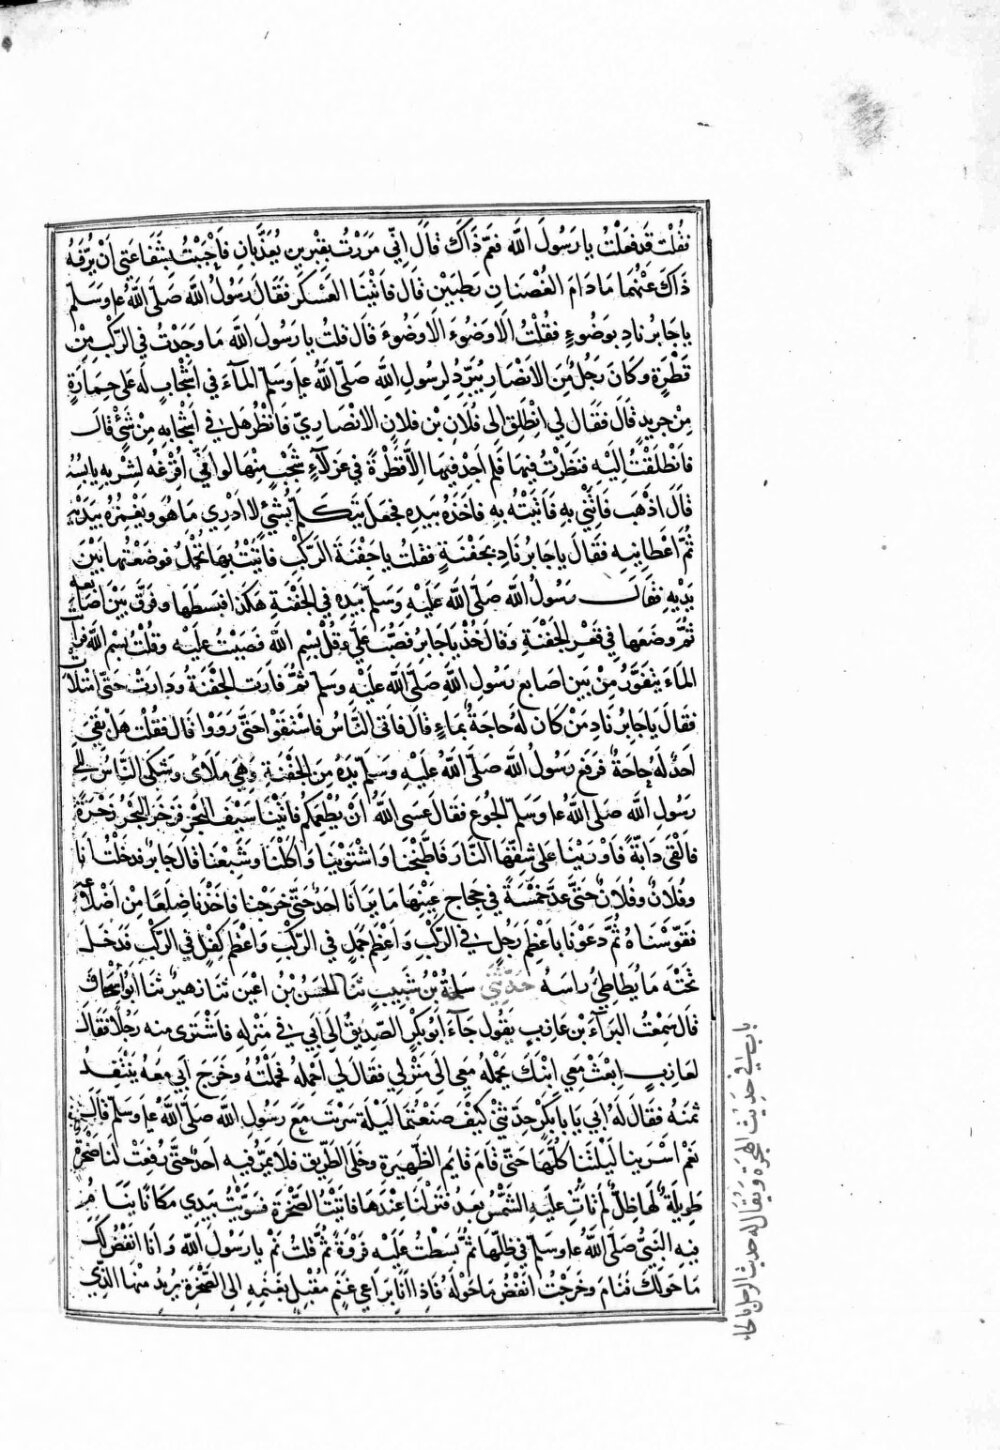 فقُلْتُ قد فعَلْتُ يا رَسُولَ اللّه فعَمّ ذَاكَ قاَلَ إنِّي مَرَرْتُ بقبْرين يُعَذَّبانِ فأحْبَبْتُ بشَفَاعَتي أنْ يُرَفَّهَ
ذَاكَ عنْهُمَا مَادَامَ الغُصْنَانِ رَطِبَيْنِ قَالَ فاتَيْنَا العَسْكَرَ فقَالَ رَسُولُ اللّه صَلّى اللّهُ علَ وسَلم
ياجَابرُ نادِ بوَضوءٍ فقُلْتُ اَلاَ وَضُوءَ الاَ وَضُوءَ قال قلتُ يا رَسُولَ اللّهِ مَا وجَدْتُ في الرَّكْبِ مِنْ
قَطْرَةٍ وكَانَ رَجُلٌ مِنَ الانْصَارِ يُبَرِّدُ لرسُولِ اللّهِ صَلّى اللّهُ علَ وسَلم المآءَ في أشْجَابٍ لهُ على حِمَارَةٍ
مِنْ جَرِيدٍ قَالَ فقَال لي انْطَلِقْ الى فُلَانِ بْنِ فلانٍ الانْصَارِيّ فانْظُرْ هَلْ في أشْجَابِهِ مِنْ شَيْءٍ قالَ
فانْطَلَقْتُ إليْهِ فنَظَرْتُ فيهَا فَلم أجِدْ فيهَا الاَّ قَطْرةً في عَزْلَآءِ شَجْبٍ مِنْهَا لوْ انّي أُفْرِغُهُ لشَرِبَهُ يابسُهُ
قَالَ اذْهَبْ فأتِني بهِ فَاتَيْتُهُ بهِ فأخَذَهُ بيَدِهِ فجَعَلَ يَتَكَلّمُ بشَيْءٍ لا أدْرِي مَا هُوَ ويَغْمِزُهُ بيَدَيْهِ
ثُمَّ أعْطَانِيهِ فقَالَ يا جابرُ نَادِ بجَفْنَةٍ فقلتُ يا جَفْنَةَ الرَّكْبِ فاُتيْتُ بهَا تُحْمَلُ فوضَعْتُهَا بَيْنَ
يَدْيهِ فقَالَ رَسُولُ اللّه صَلّى اللّهُ عَليْهِ وَسَلمَ بيَدِهِ في الجَفْنَةِ هَكَذا فبَسَطَهَا وفَرَّقَ بيْنَ أصَابعِهِ
ثُمَّ وضَعَهَا فِي قَعْرِ الجَفْنَةِ وقَالَ خُذْ يا جابرُ فَصُبَّ عَلَيَّ وقُلْ بِسْمِ اللّهِ فصَبَبْتُ عليْهِ وقُلْتُ بسْمِ اللّهِ فرَأيتُ
الماءَ يَتَفَوَّرُ مِنْ بيْنِ أصَابِعِ رَسُولِ اللّهِ صَلّى اللّهُ عَليْهِ وسَلم ثمَّ فارَتِ الجَفْنَةُ ودَارَتْ حَتّى امْتَلأتْ
فقَالَ يَا جَابرُ نَادِ مَنْ كانَ لهُ حَاجَةٌ بمَاءٍ قَالَ فاَتى النَّاسُ فاسْتَقَوْا حَتّى رَوَوْا قال فقُلْتُ هَلْ بَقِيَ
أحَدٌ لهُ حاجَةٌ فرَفعَ رَسُولُ اللّهِ صَلّى اللّهُ عليْهِ وَسَلمَ يَدَهُ مِنَ الجَفْنَةِ وهِيَ مَلأى وشَكَى النَّاسُ إلى
رَسُولِ اللّهِ صَلّى اللّهُ علَ وَسَلم الجُوعَ فقَالَ عسَى اللّهُ أنْ يُطْعِمَكُم فاتَيْنَا سِيْفَ البَحْرِ فزَخَرَ البَحْرُ زَخْرَةً
فالْقَى دَابَّةً فاَوْرَيْنَا على شِقِّهَا النَّارَ فاطَّبَخْنا واشْتَوَيْنَا وَأكَلْنَا وشَبِعْنَا قالَ جابرٌ فدَخَلْتُ أنَا
وفُلانٌ وفُلانٌ حَتّى عدَّ خَمْسَةً في حِجَاجِ عَيْنِهَا مَا يَرَانَا أحَدٌ حَتَّى خرَجْنا فأخَذْنَا ضِلَعًا مِنْ أضْلاعِهِ
فقَوَّسْنَاهُ ثُمَّ دعَوْنَا باَعْظَمِ رَجُلٍ في الرَّكْبِ وأعْظَمِ جَمَلٍ في الرَّكْبِ وأعْظَمِ كِفْلٍ في الرَّكْبِ فَدَخَلَ
تحْتَهُ مَا يُطَاطِئُ رَاسَهُ حَدَّثَنِي سَلَمَةُ بْنُ شَبِيبٍ ثنَا الحَسَنُ بْنُ أعْيَنَ ثنَا زهَيْرٌ ثنَا أبُو إسْحَاقَ
قالَ سَمِعْتُ البَرَآءَ بْنَ عَازِبٍ يَقُولُ جَآءَ أبُو بَكْرٍ الصِّدِيقُ إلى أبي في مَنْزِلِهِ فاشْتَرى منه رَجُلًا فقَالَ
لعَازِبٍ ابْعَثْ مَعِيَ ابْنَكَ يَحْمِلْهُ مَعِي إلى مَنْزِلي فقَال لي أبي احْمِلْهُ فحَمَلْتُهُ وخَرَجَ أبي معَهُ يَنْتَقِدُ
ثمَنَهُ فقَالَ لهُ أبي يَا بَا بَكْرٍ حِدِّثْني كَيْفَ صَنَعْتُمَا ليْلَةَ سَرَيْتَ مَعَ رَسُولِ اللّه صَلّى اللّهُ علَ وسَلم قَالَ
نَعَمْ أسْرَيْنا لَيْلتَنَا كُلَّهَا حَتّى قَامَ قَايمُ الظَّهِيرَةِ وخَلَى الطَّرِيقُ فلا يَمُرُّ فيهِ أحَدٌ حَتّى رُفِعَتْ لَنَا صَخْرَةٌ
طَوِيلَةٌ لَهَا ظِلٌّ لم تَاتِ عليهِ الشَّمْسُ بَعدُ فنَزلْنَا عِنْدهَا فاَتيْتُ الصَّخْرَةَ فسَوَّيْتُ بيَدِي مَكَانًا يَنَامُ
فيهِ النَّبيُّ صَلّى اللّهُ علَ وسَلم في ظِلِّهَا ثمَّ بَسَطْتُ عليْهِ فَرْوَةً ثمَّ قلتُ نَمْ يا رَسُولَ اللّهِ وَأنَا أنْفُضُ لكَ
مَا حَولَكَ فنَامَ وخَرجْتُ أنفُضُ مَا حَوْلَهُ فَاِذا أنَا برَاعِي غنَمٍ مُقْبِلٍ بغَنَمِهِ إلى الصَّخْرَةِ يرِيدُ مِنْهَا الَّذِي
باب في حديث الهجرة ويقال له حديث الرحل بالحاء